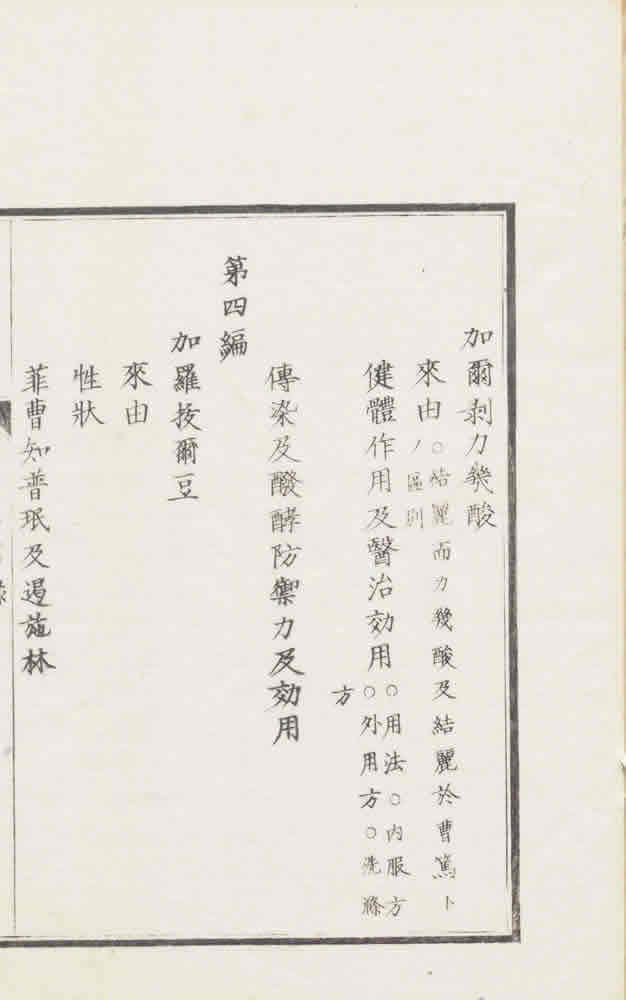 加爾剥力幾酸
來由○結麗而力幾酸及結麗於曹篤ト
ノ區別
健體作用及醫治効用○用法○内服方
○外用方○洗滌
方
傳染及醱酵防禦力及効用
第四編
加羅拔爾豆
來由
性狀
菲曹知普珉及遏施林